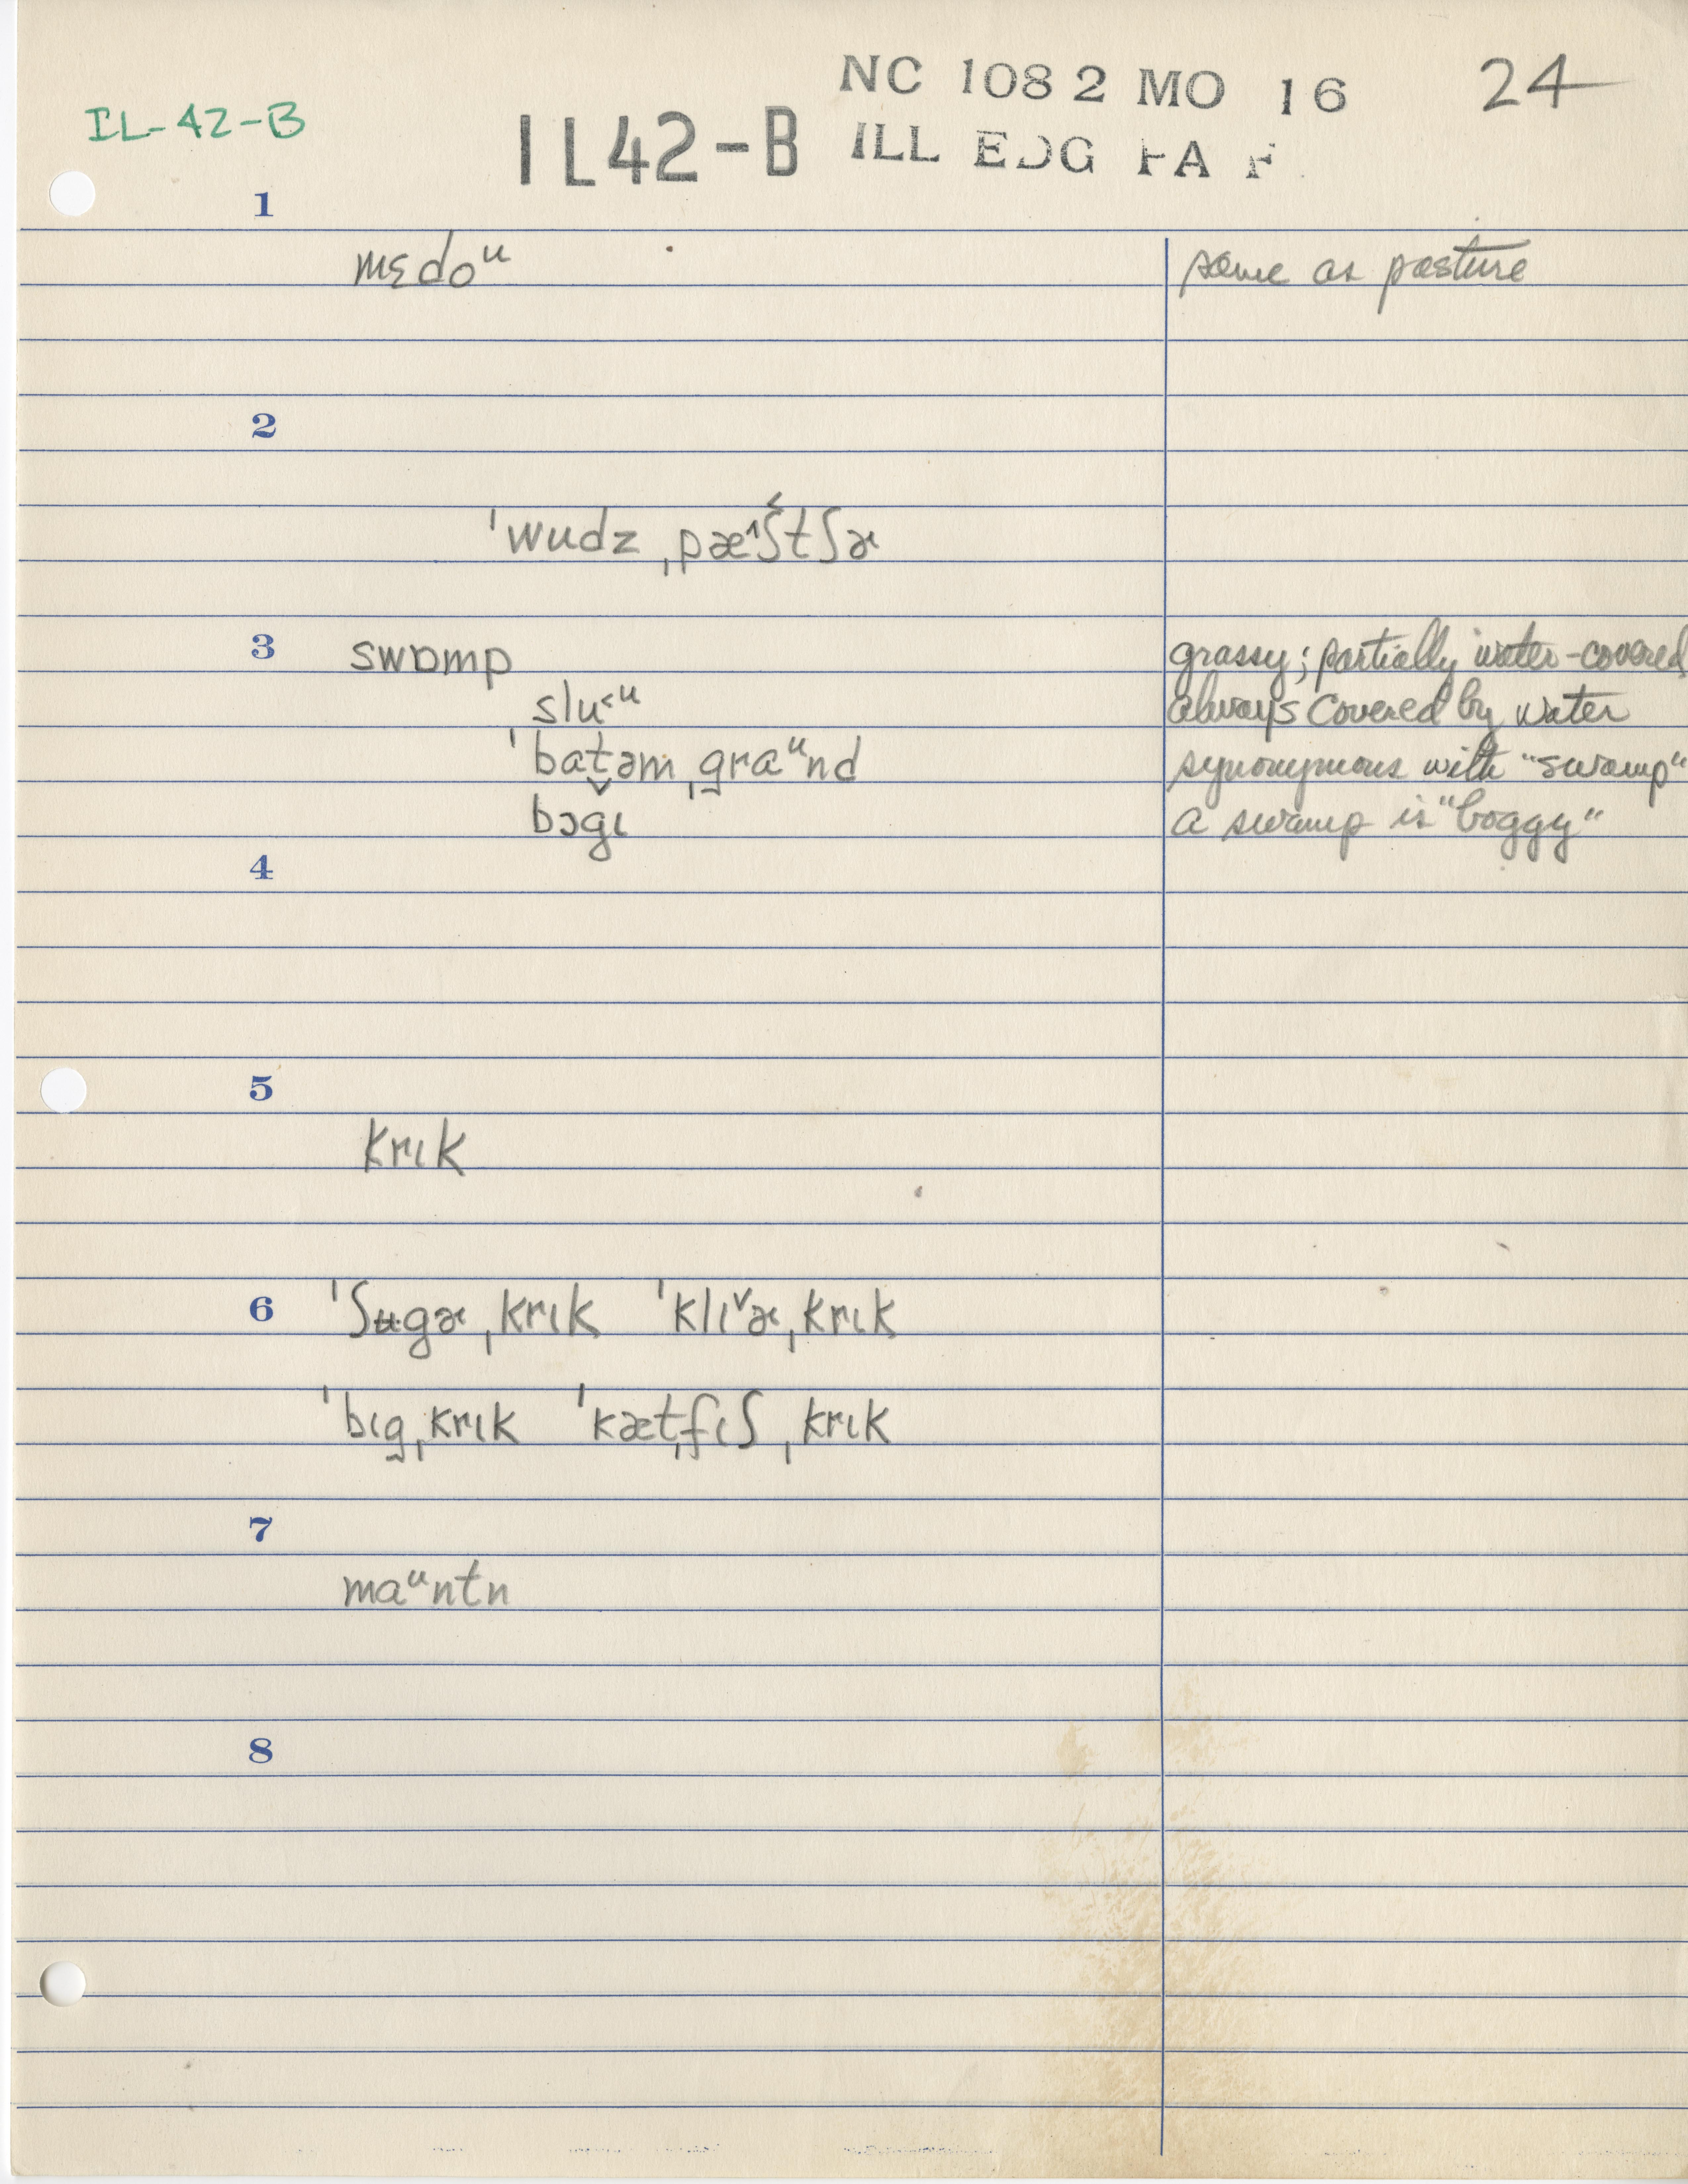 IL-42-B
IL42-B
NC 1082 MO 16
ILL EDG PA F
24
1
mɛdoᵘ same as pasture
2
ˈwudz ˌpæ^ʃtʃɚ
3 swɒmp grassy; partially water-covered
slu<ᵘ always covered by water
ˈbat̬əm ˌgraᵘnd synonymous with "swamp"
bɔgɩ a swamp is "boggy"
4
5
krɩk
6 ˈʃʉgɚ ˌkrɩk ˈklɪ˅ɚ ˌkrɩk
ˈbɩg ˌkrɩk ˈkætˌfɩʃ ˌkrɩk
7
maᵘntn
8